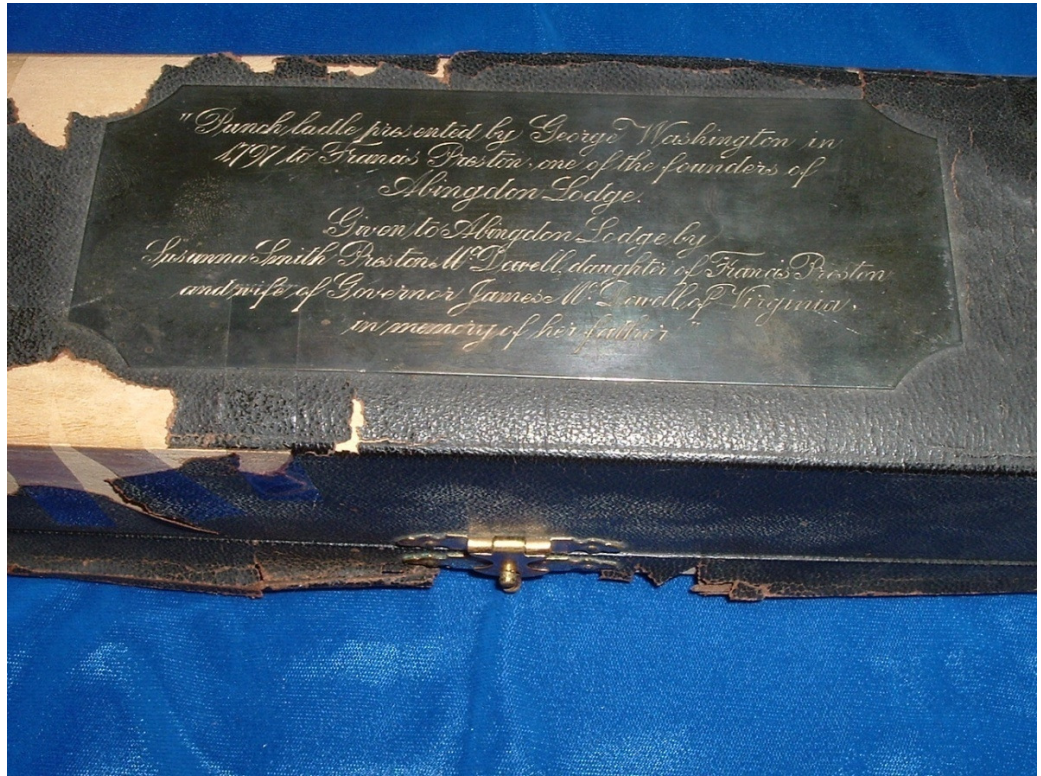 "Punch ladle presented by George Washington in
1797 to Francis Preston one of the founders of
Abingdon Lodge.
Given to Abingdon Lodge by
Susanna Smith Preston McDowell, daughter of Francis Preston
and wife of Governor James McDowell of Virginia,
in memory of her father"